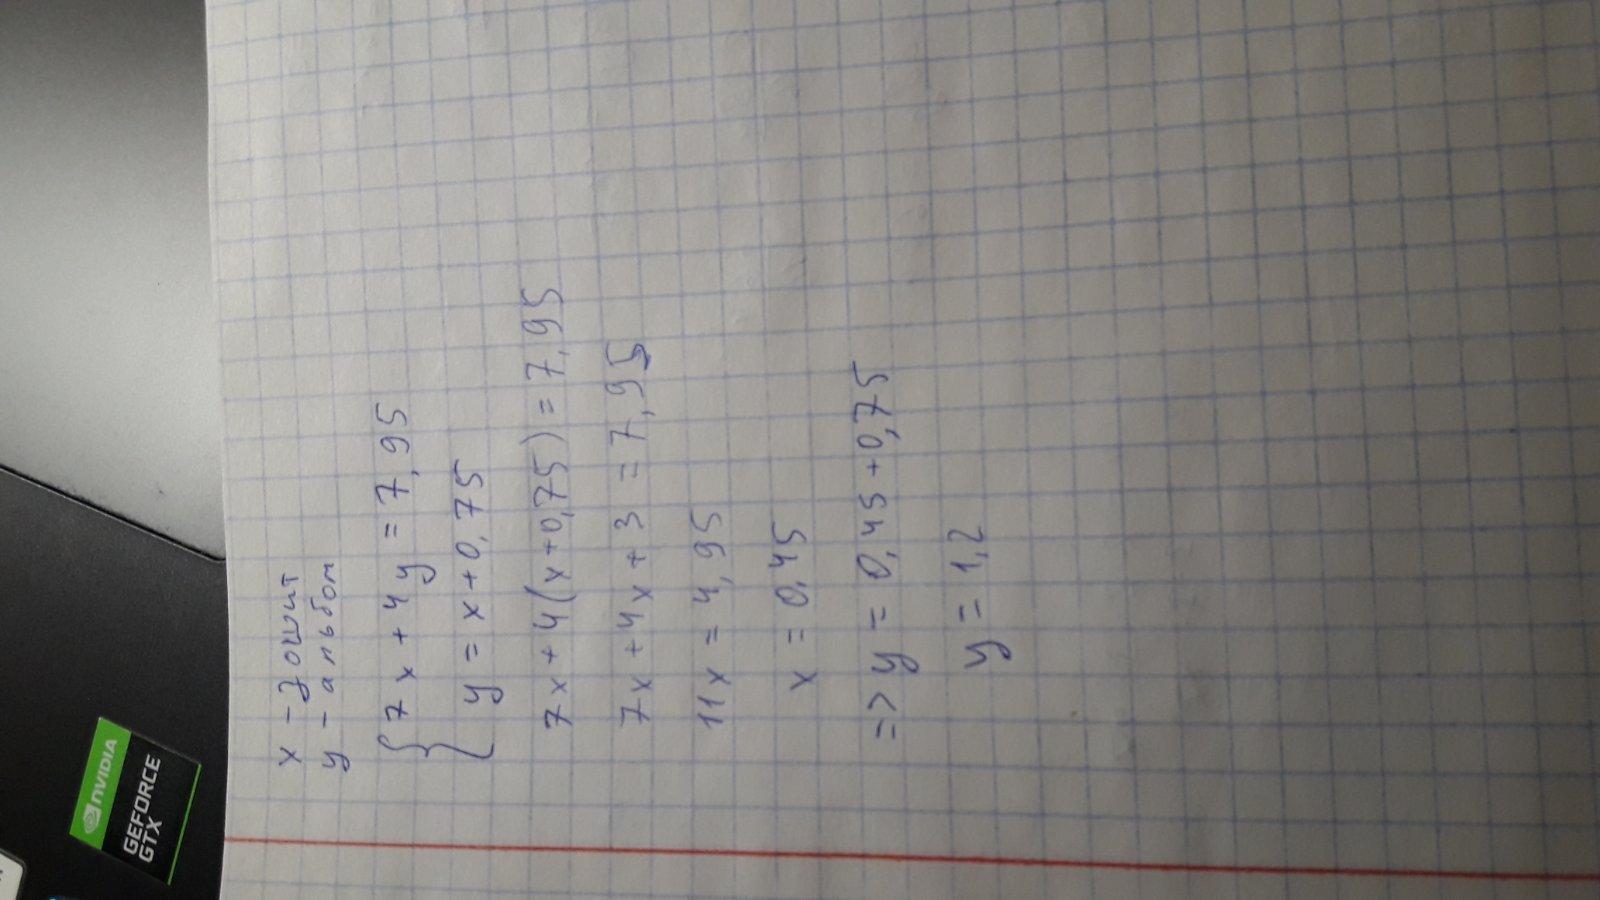 x - зошит
y - альбом
7x + 4y = 7,95
y = x + 0,75
7x + 4(x + 0,75) = 7,95
7x + 4x + 3 = 7,95
11x = 4,95
x = 0,45
=> y = 0,45 + 0,75
y = 1,2
NVIDIA
GEFORCE
GTX